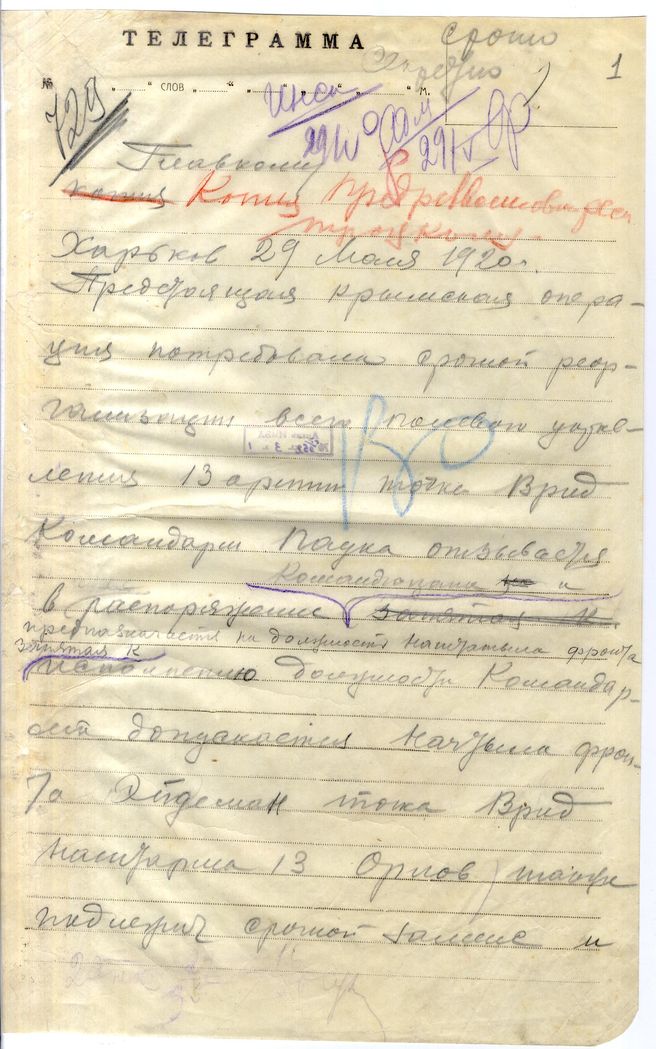 ТЕЛЕГРАММА
Срочно
1
№ „ “ слов „ “ „ “ „ “ м.
729
Главкому
копия Копия Предреввоенсовета
Троцкому.
Харьков 29 Мая 1920 г.
Предстоящая крымская опера-
ция потребовала срочной реор-
ганизации всего полевого управ-
ления 13 армии точка Врид
Командарм Паука отзывается
Командюгзапа и
в распоряжение запятая к
предназначается на должность Начтыла фронта
запятая к
исполнению должности Командар-
ма допускается Начтыла фрон-
та Эйдеман точка Врид
Наштарма 13 Орлов также
подлежит срочной замене и